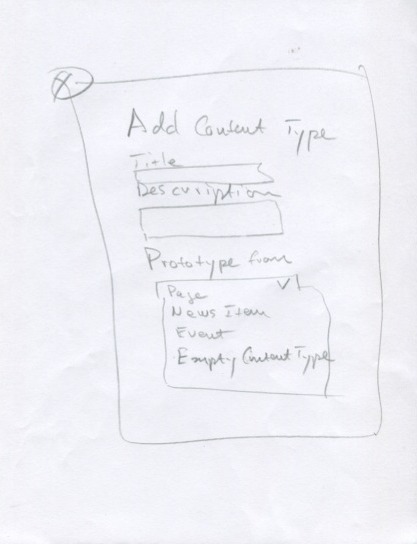 X
Add Content Type
Title
Description
Prototype from
Page V
News Item
Event
Empty Content Type